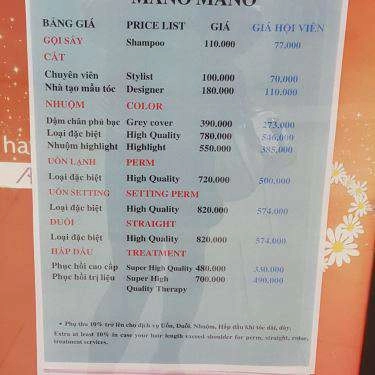 MANO MANO
BẢNG GIÁ PRICE LIST GIÁ GIÁ HỘI VIÊN
GỌI SẤY Shampoo 110.000 77.000
CẮT
Chuyên viên Stylist 100.000 70.000
Nhà tạo mẫu tóc Designer 180.000 110.000
NHUỘM COLOR
Dặm chân phủ bạc Grey cover 390.000 273.000
Loại đặc biệt High Quality 780.000 546.000
Nhuộm highlight Highlight 550.000 385.000
UỐN LẠNH PERM
Loại đặc biệt High Quality 720.000 500.000
UỐN SETTING SETTING PERM
Loại đặc biệt High Quality 820.000 574.000
DUỖI STRAIGHT
Loại đặc biệt High Quality 820.000 574.000
HẤP DẦU TREATMENT
Phục hồi cao cấp Super High Quality 480.000 330.000
Phục hồi trị liệu Super High 700.000 490.000
Quality Therapy
• Phụ thu 10% trở lên cho dịch vụ Uốn, Duỗi, Nhuộm, Hấp dầu khi tóc dài, dày.
Extra at least 10% in case your hair length exceed shoulder for perm, straight, color,
treatment services.
ha